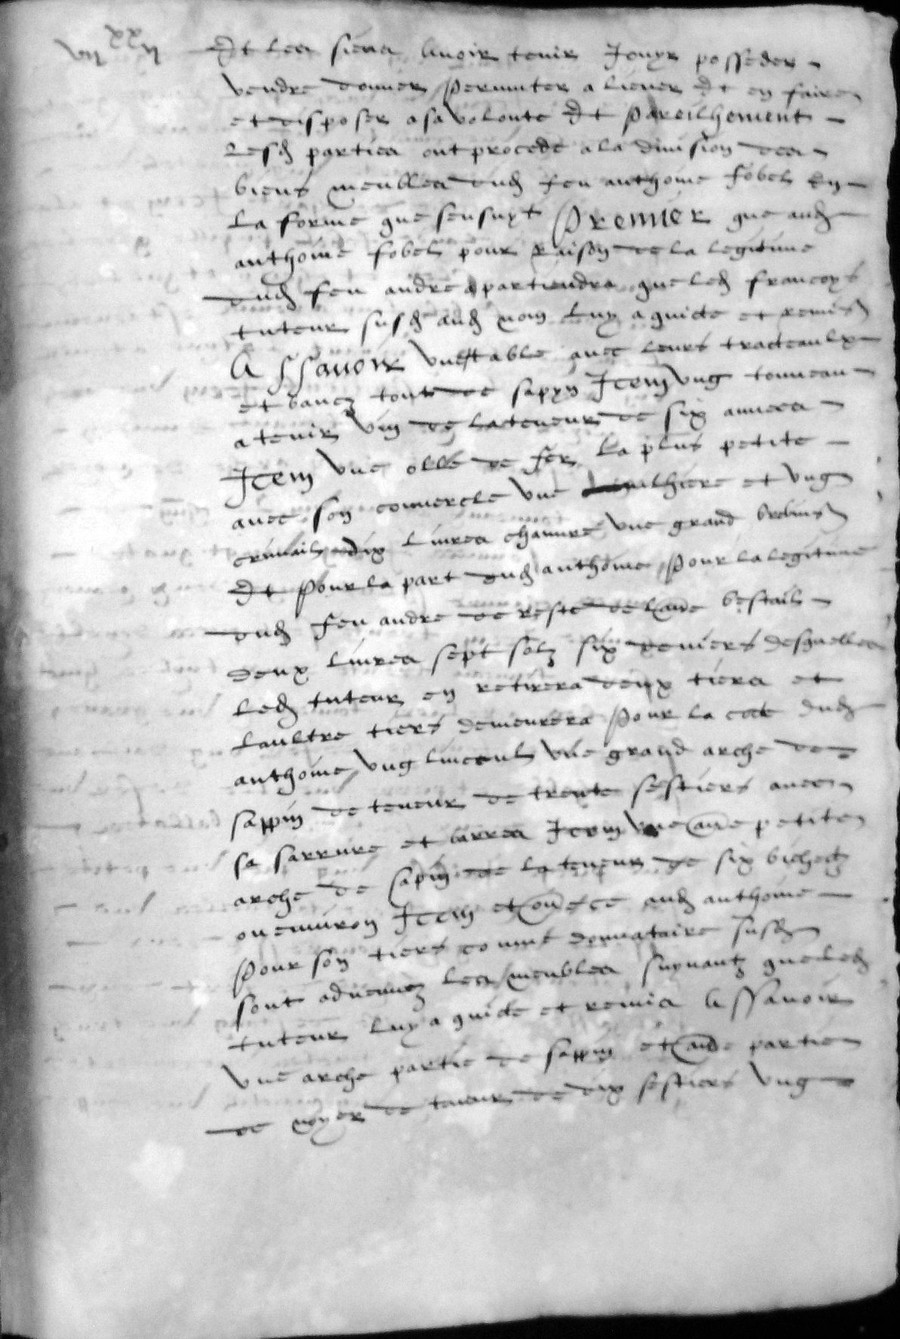 vii xx ii
Et les siens avoir tenir Jouyr posseder
vendre donner permuter aliener Et en faire
et disposer a sa volonte Et Pareilhement
lesd parties ont procede a la division des
biens meubles dud feu anthoine fobel En
la forme que sensuyt Premier que aud
anthoine fobel pour Raison de la legitime
dud feu andre apartiendra que led francoys
tuteur susd aud nom luy a quicte et remis
Assavoir une table avec leurs tracteaulx
et bancz tout de sapyn Item ung tonneau
a tenir vin de la teneur de six annees
Item une olle de fer la plus petite
avec son couvercle une et ung
dix livres chanvre une grand
Et Pour la part dud anthoine Pour la legitime
dud feu andre de reste de bestail
deux livres sept solz six deniers desquelles
led tuteur en retirera deux tiers et
laultre tiers demeurera Pour la cote dud
anthoine ung linceul une grand arche de
sappin de teneur de trente sestiers avec
sa sarrure et barres Item une petite
arche de sapin de la teneur de six bichetz
ou environ Item et aud anthoine
Pour son tiers comme donnataire susd
sont advenuz les meubles suyvantz que led
tuteur luy a quicte et remis Assavoir
Une arche partie de sappin et partie
de noyer de teneur de dix sestiers Ung